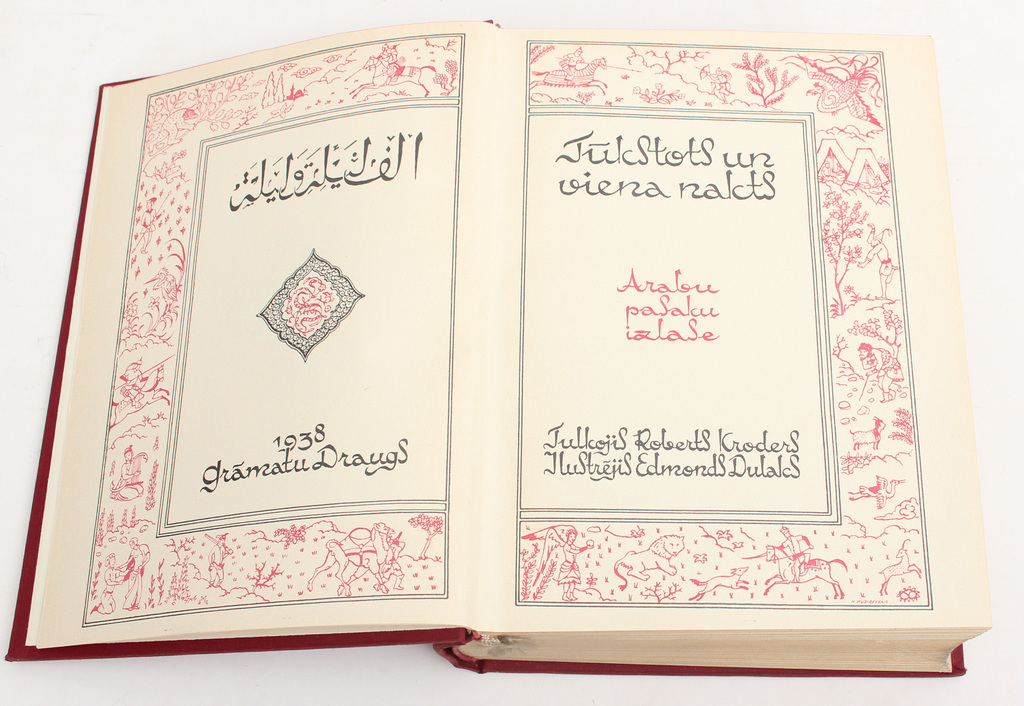 الف ليلة وليلة
1938
Grāmatu Draugs
Tūkstots un
viena nakts
Arabu
pasaku
izlase
Tulkojis Roberts Kroders
Ilustrējis Edmonds Dulaks